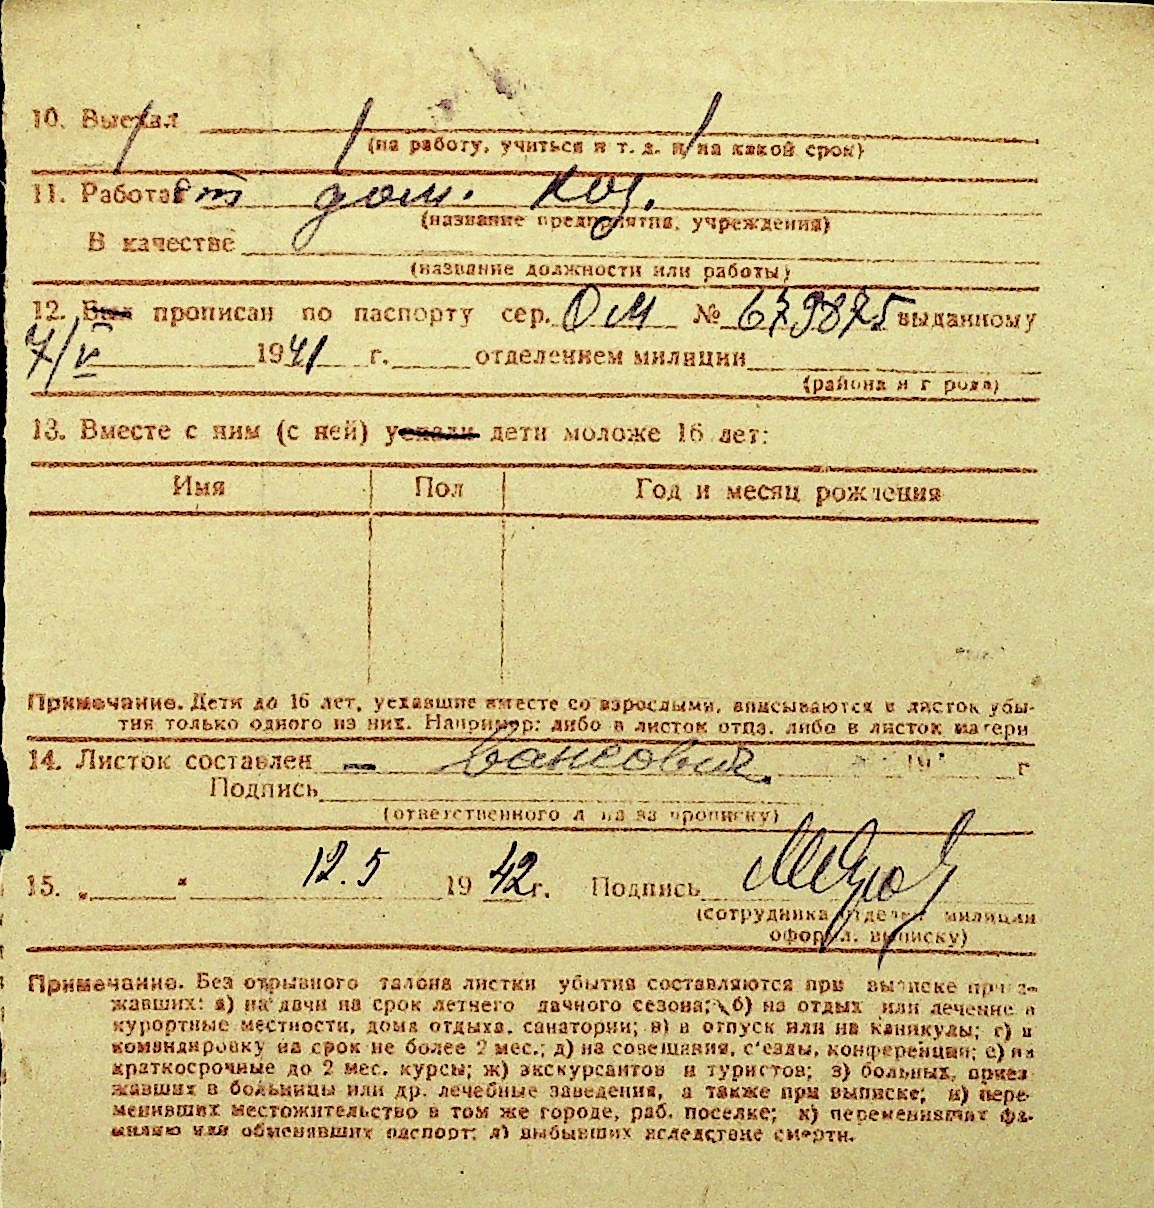 10. Выехал
(на работу, учиться и т. д. и на какой срок)
11. Работает дом. хоз.
(название предприятия, учреждения)
В качестве
(название должности или работы)
12. Был прописан по паспорту сер. ОМ № 679875 выданному
7/V 1941 г. отделением милиции
(района и города)
13. Вместе с ним (с ней) уехали дети моложе 16 лет:
Имя Пол Год и месяц рождения
Примечание. Дети до 16 лет, уехавшие вместе со взрослыми, вписываются в листок убы-
тия только одного из них. Например: либо в листок отца, либо в листок матери
14. Листок составлен – 19 г
Подпись
(ответственного лица за прописку)
15. „ “ 12.5 1942 г. Подпись
(сотрудника отделен. милиции
оформл. выписку)
Примечание. Без отрывного талона листки убытия составляются при выписке приез-
жавших: а) на дачи на срок летнего дачного сезона; б) на отдых или лечение в
курортные местности, дома отдыха, санатории; в) в отпуск или на каникулы; г) в
командировку на срок не более 2 мес.; д) на совещания, с'езды, конференции; е) на
краткосрочные до 2 мес. курсы; ж) экскурсантов и туристов; з) больных, приез-
жавших в больницы или др. лечебные заведения, а также при выписке; и) пере-
менивших местожительство в том же городе, раб. поселке; к) переменивших фа-
милию или обменявших паспорт; л) выбывших вследствие смерти.